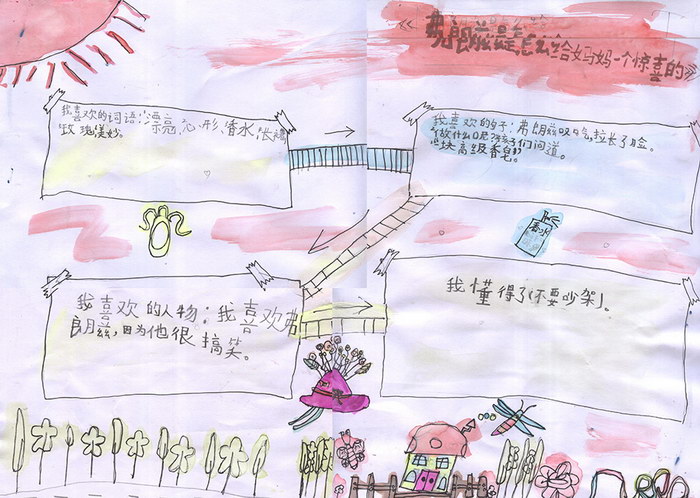 《弗朗兹是怎么给妈妈一个惊喜的》
我喜欢的词语:漂亮、心形、香水、
玫瑰、美妙。
我喜欢的句子:弗朗兹吸口气,拉长了脸。
“做什么呢?”孩子们问道。
“一块高级香皂。”
香水
我喜欢的人物:我喜欢弗
朗兹,因为他很搞笑。
我懂得了(不要吵架)。